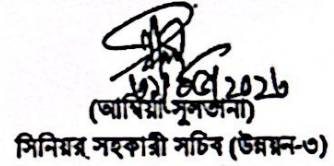 (আম্বিয়া সুলতানা)
সিনিয়র সহকারী সচিব (উন্নয়ন-৩)